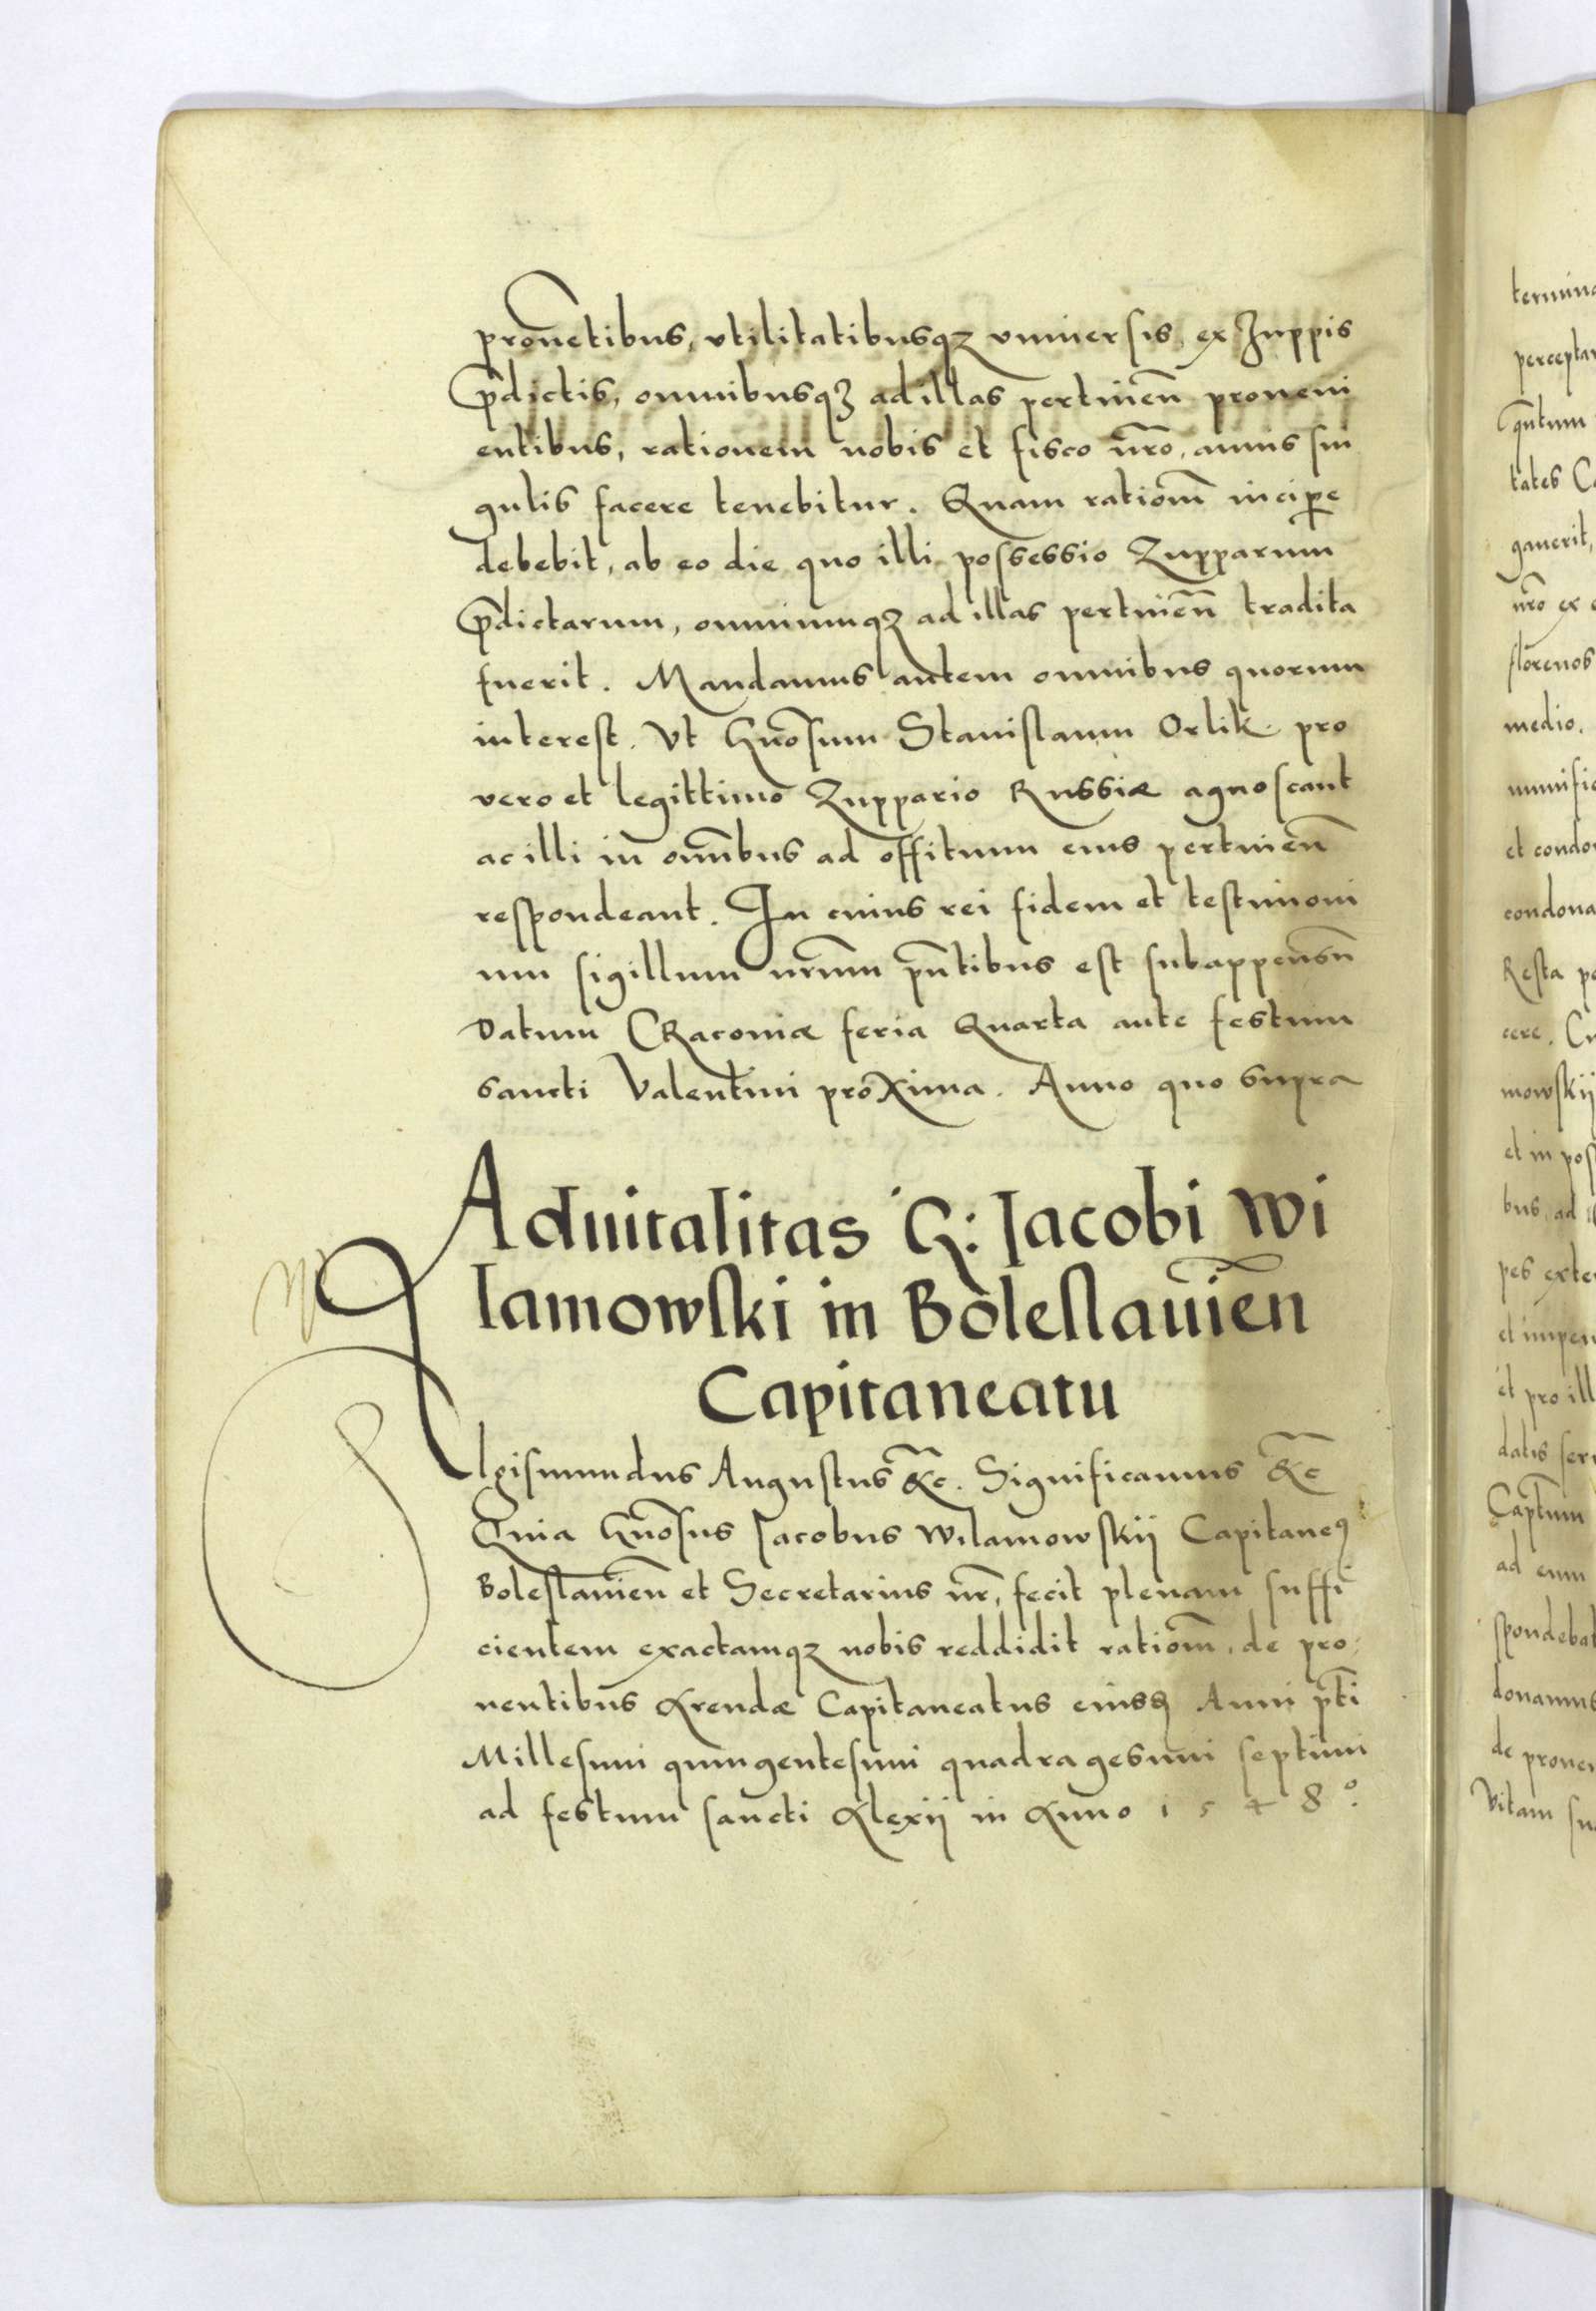 provẽtibus, vtilitatibusqꝫ vniuersis, ex Zuppis
p̃dictis, omnibusqꝫ ad illas pertineñ proueni
entibus, rationem nobis et fisco nr̃o, annis sin
gulis facere tenebitur. Quam rationẽ incipe̱
debebit, ab eo die quo illi possessio Zupparum
p̃dictarum, omniumqꝫ ad illas pertineñ tradita
fuerit. Mandamus autem omnibus quorum
interest. Vt Gñosum Stanislaum Orlik pro
vero et legittimo Zuppario Russiæ agnoscant
ac illi in omñbus ad offitium eius pertineñ
respondeant. In cuius rei fidem et testimoni
um sigillum nr̃um pñtibus est subappensũ
Datum CRacouiæ feria Quarta ante festum
sancti Valentini proXima. Anno quo supra
Aduitalitas G: Jacobi Wi
lamowski in Boleslauień
Capitaneatu
Igismundus Augustus &c̃. Significamus &c̃
Quia Gñosus Jacobus Wilamowskij Capitaneꝰ
Boleslauieñ et Secretarius nr̃, fecit plenam suffi
cientem exactamqꝫ nobis reddidit rationẽ, de pro
uentibus Arendæ Capitaneatus eiusꝫ Anni p̃ti
Millesimi quingentesimi quadragesimi septimi
ad festum sancti Alexij in Anno 1548º.
termina
percepta
q̃ntum
tates
gauerit,
nr̃o ex
florenos
medio.
munifi
et condo
condona
Resta
cere.
mowskij
et in pos
bus, ad
pes exte
et impen
et pro ill
datis ser
Capt̃um
ad eum
spondebat
donamus
de proue
Vitam su